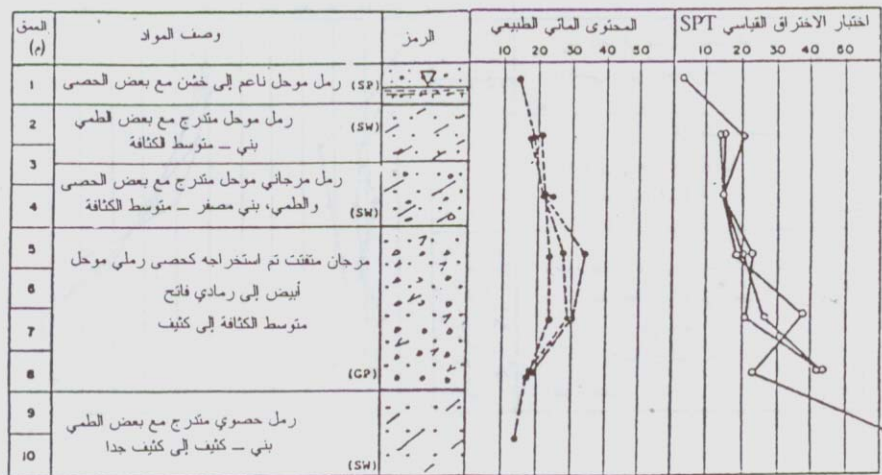 العمق
(م)
وصف المواد
الرمز
المحتوى المائي الطبيعي
10 20 30 40 50
اختبار الاختراق القياسي SPT
10 20 30 40 50
1
رمل موحل ناعم إلى خشن مع بعض الحصى (SP)
2
رمل موحل متدرج مع بعض الطمي (SW)
بني – متوسط الكثافة
3
رمل مرجاني موحل متدرج مع بعض الحصى
4
والطمي، بني مصفر – متوسط الكثافة (SW)
5
مرجان متفتت تم استخراجه كحصى رملي موحل
6
أبيض إلى رمادي فاتح
7
متوسط الكثافة إلى كثيف
8
(GP)
9
رمل حصوي متدرج مع بعض الطمي
10
بني – كثيف إلى كثيف جدا
(SW)